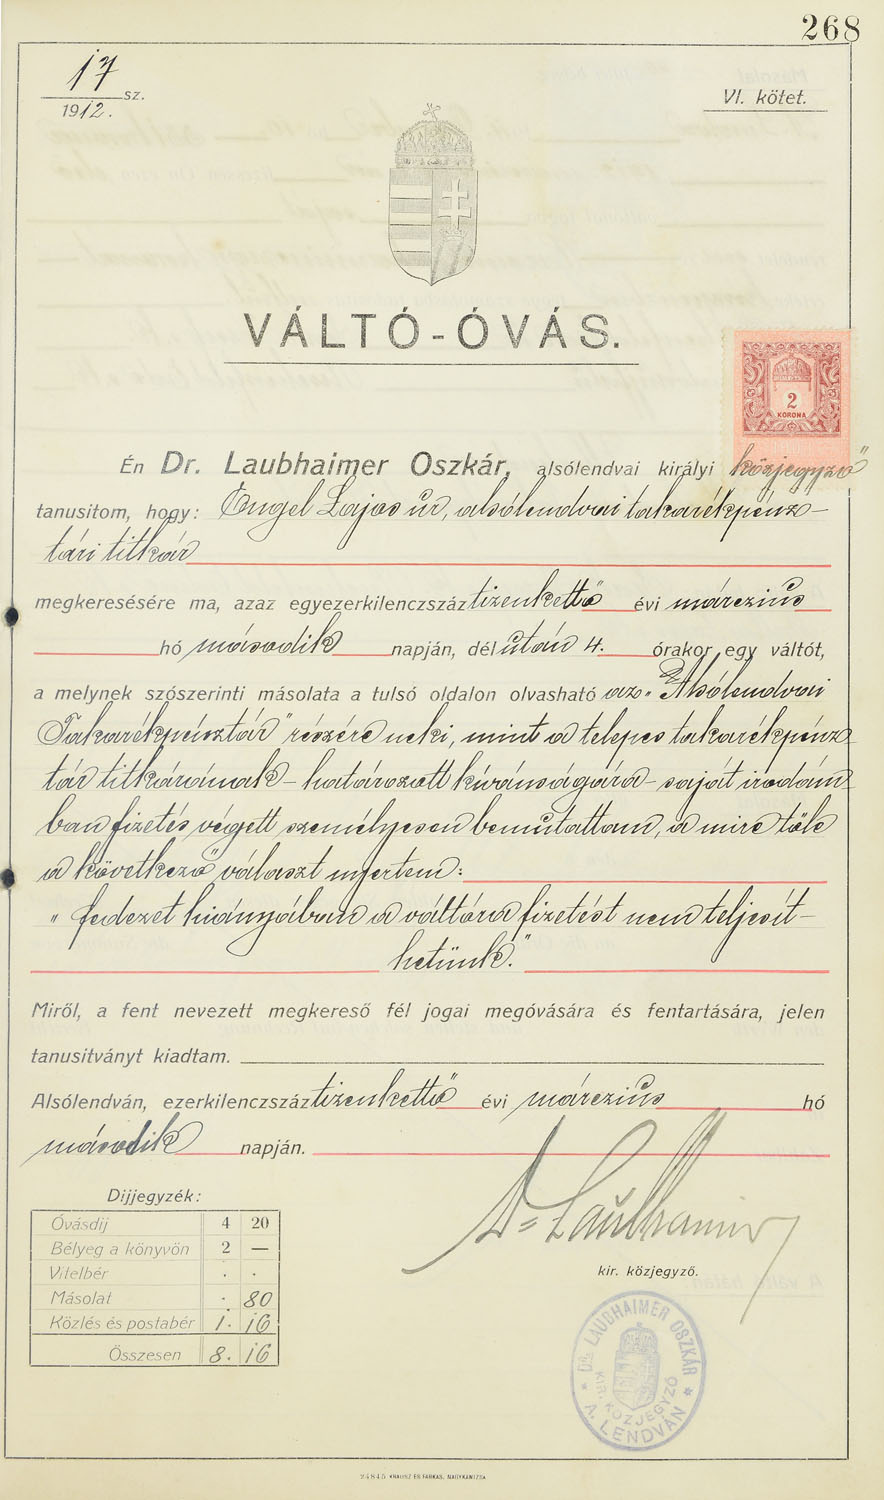 268
17
1912. sz.
VI. kötet.
VÁLTÓ-ÓVÁS.
2
KORONA
Én Dr. Laubhaimer Oszkár, alsólendvai királyi közjegyző
tanusitom, hogy: Engel Lajos úr, alsólendvai takarékpénz-
tári titkár
megkeresésére ma, azaz egyezerkilenczszáztizenkettő évi márczius
hó második napján, délután 4. órakor egy váltót,
a melynek szószerinti másolata a tulsó oldalon olvasható az „Alsólendvai
Takarékpénztár" részére neki, mint a telepes takarékpénz-
tár titkárának – határozott kívánságára – saját irodám-
ban fizetés végett személyesen bemutattam, a mire tőle
a következő választ nyertem:
„fedezet hiányában a váltóra fizetést nem teljesít-
hetünk."
Miről, a fent nevezett megkereső fél jogai megóvására és fentartására, jelen
tanusitványt kiadtam.
Alsólendván, ezerkilenczszáztizenkettő évi márczius hó
második napján.
Dr Laubhaimer
kir. közjegyző.
Dijjegyzék:
Óvásdij 4 20
Bélyeg a könyvön 2 —
Vitelbér . .
Másolat . 80
Közlés és postabér 1. 16
Összesen 8. 16
DR. LAUBHAIMER OSZKÁR
KIR. KÖZJEGYZŐ
* A. LENDVÁN *
24845 KRAUSZ ÉS FARKAS, NAGYKANIZSA